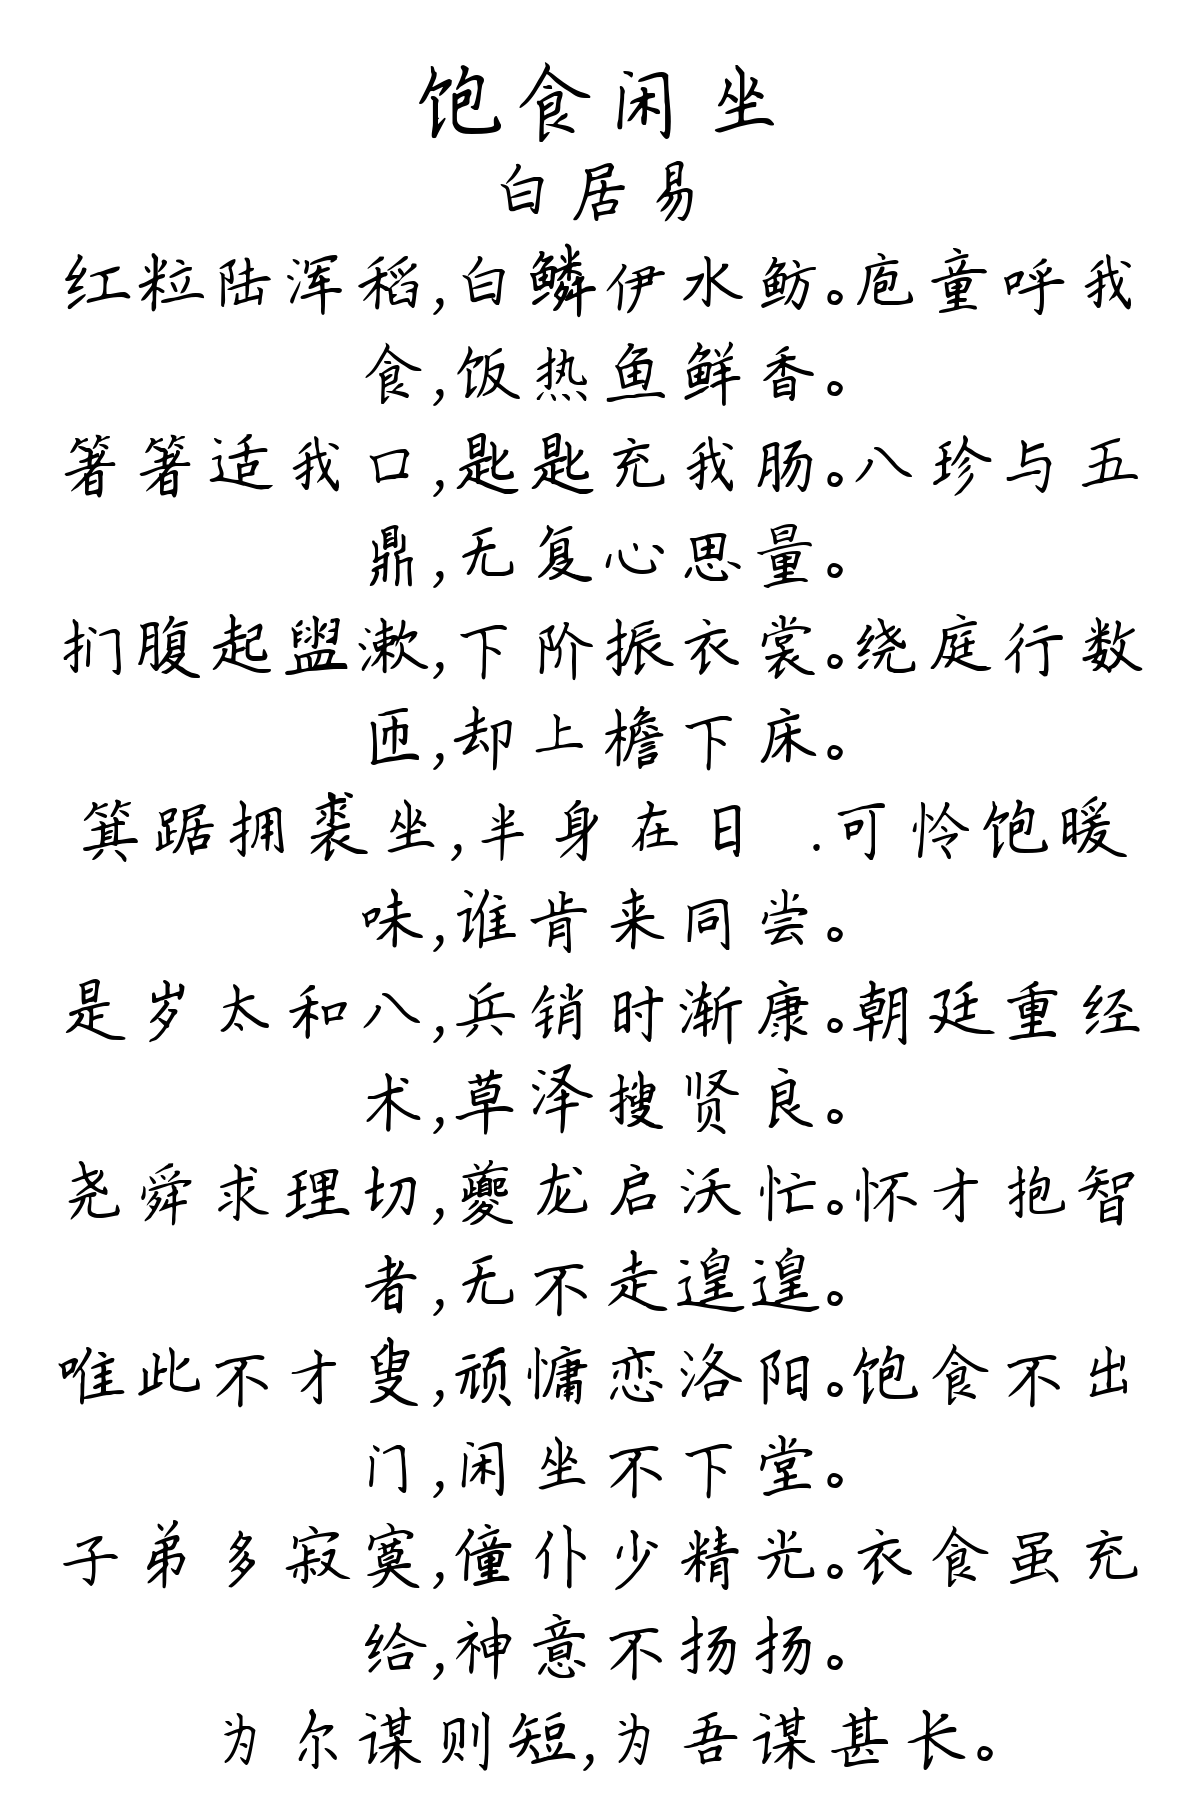 饱食闲坐
白居易
红粒陆浑稻,白鳞伊水鲂。庖童呼我
食,饭热鱼鲜香。
箸箸适我口,匙匙充我肠。八珍与五
鼎,无复心思量。
扪腹起盥漱,下阶振衣裳。绕庭行数
匝,却上檐下床。
箕踞拥裘坐,半身在日 .可怜饱暖
味,谁肯来同尝。
是岁太和八,兵销时渐康。朝廷重经
术,草泽搜贤良。
尧舜求理切,夔龙启沃忙。怀才抱智
者,无不走遑遑。
唯此不才叟,顽慵恋洛阳。饱食不出
门,闲坐不下堂。
子弟多寂寞,僮仆少精光。衣食虽充
给,神意不扬扬。
为尔谋则短,为吾谋甚长。